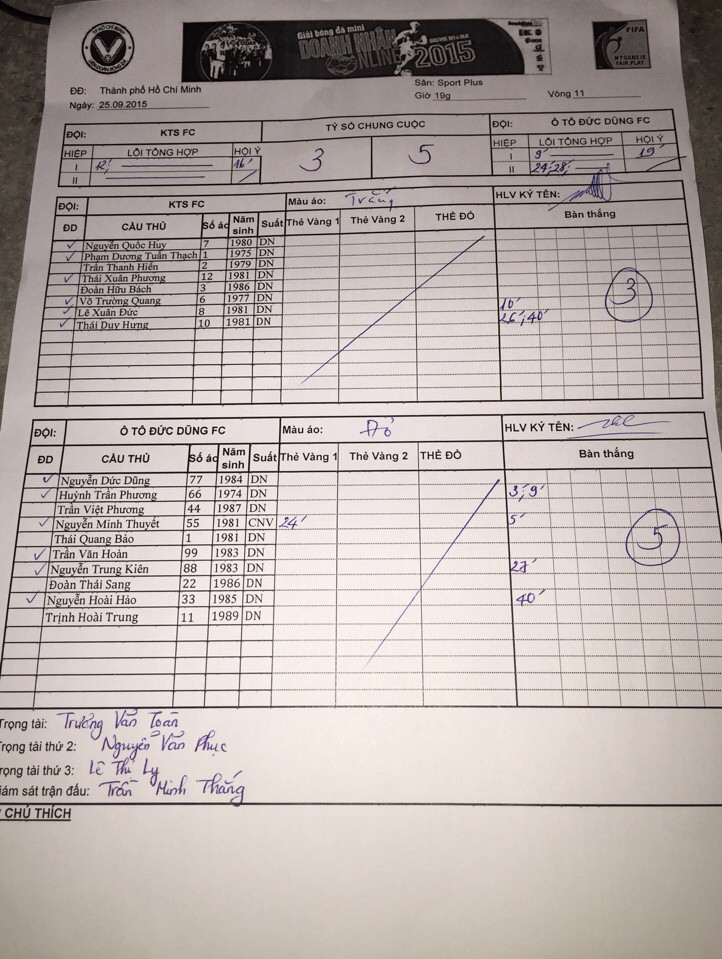 TP HỒ CHÍ MINH
LIÊN ĐOÀN BÓNG ĐÁ
Giải bóng đá mini
DOANH NHÂN
ONLINE 2015
FIFA
MY GAME IS FAIR PLAY
ĐĐ: Thành phố Hồ Chí Minh
Sân: Sport Plus
Ngày: 25.09.2015
Giờ 19g
Vòng 11
ĐỘI: KTS FC TỶ SỐ CHUNG CUỘC ĐỘI: Ô TÔ ĐỨC DŨNG FC
HIỆP LỖI TỔNG HỢP HỘI Ý 3 5 HIỆP LỖI TỔNG HỢP HỘI Ý
I 12' 16' I 9' 19'
II II 24', 28'
ĐỘI: KTS FC Màu áo: Trắng HLV KÝ TÊN:
ĐD CẦU THỦ Số áo Năm sinh Suất Thẻ Vàng 1 Thẻ Vàng 2 THẺ ĐỎ Bàn thắng
✓ Nguyễn Quốc Huy 7 1980 DN
✓ Phạm Dương Tuấn Thạch 1 1975 DN
Trần Thanh Hiền 2 1979 DN
✓ Thái Xuân Phương 12 1981 DN
Đoàn Hữu Bách 3 1986 DN
✓ Võ Trường Quang 6 1977 DN 10'
✓ Lê Xuân Đức 8 1981 DN 26', 40'
✓ Thái Duy Hưng 10 1981 DN
3
ĐỘI: Ô TÔ ĐỨC DŨNG FC Màu áo: Đỏ HLV KÝ TÊN:
ĐD CẦU THỦ Số áo Năm sinh Suất Thẻ Vàng 1 Thẻ Vàng 2 THẺ ĐỎ Bàn thắng
✓ Nguyễn Dức Dũng 77 1984 DN
✓ Huỳnh Trần Phương 66 1974 DN 3', 9'
Trần Việt Phương 44 1987 DN
✓ Nguyễn Minh Thuyết 55 1981 CNV 24' 5'
Thái Quang Bảo 1 1981 DN
✓ Trần Văn Hoàn 99 1983 DN
✓ Nguyễn Trung Kiên 88 1983 DN 27'
Đoàn Thái Sang 22 1986 DN
✓ Nguyễn Hoài Hảo 33 1985 DN 40'
Trịnh Hoài Trung 11 1989 DN
5
Trọng tài: Trương Văn Toản
Trọng tài thứ 2: Nguyễn Văn Phục
Trọng tài thứ 3: Lê Thị Ly
Giám sát trận đấu: Trần Minh Thắng
CHÚ THÍCH